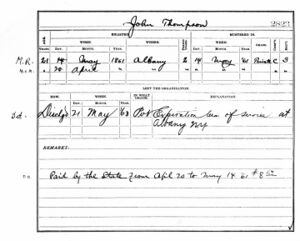 John Thompson 2823
ENLISTED. MUSTERED IN.
AGE. DAY. MONTH. YEAR. WHERE. DAY. MONTH. YEAR. GRADE.
M.R. 21 14 May 1861 Albany 2 14 May 61 Private C 3
20 April "
LEFT THE ORGANIZATION.
HOW. DAY. MONTH. YEAR. EXPLANATION.
Dischg'd 21 May 63 Pvt Expiration term of service at
Albany NY
REMARKS:
Paid by the State from April 20 to May 14 61 $8